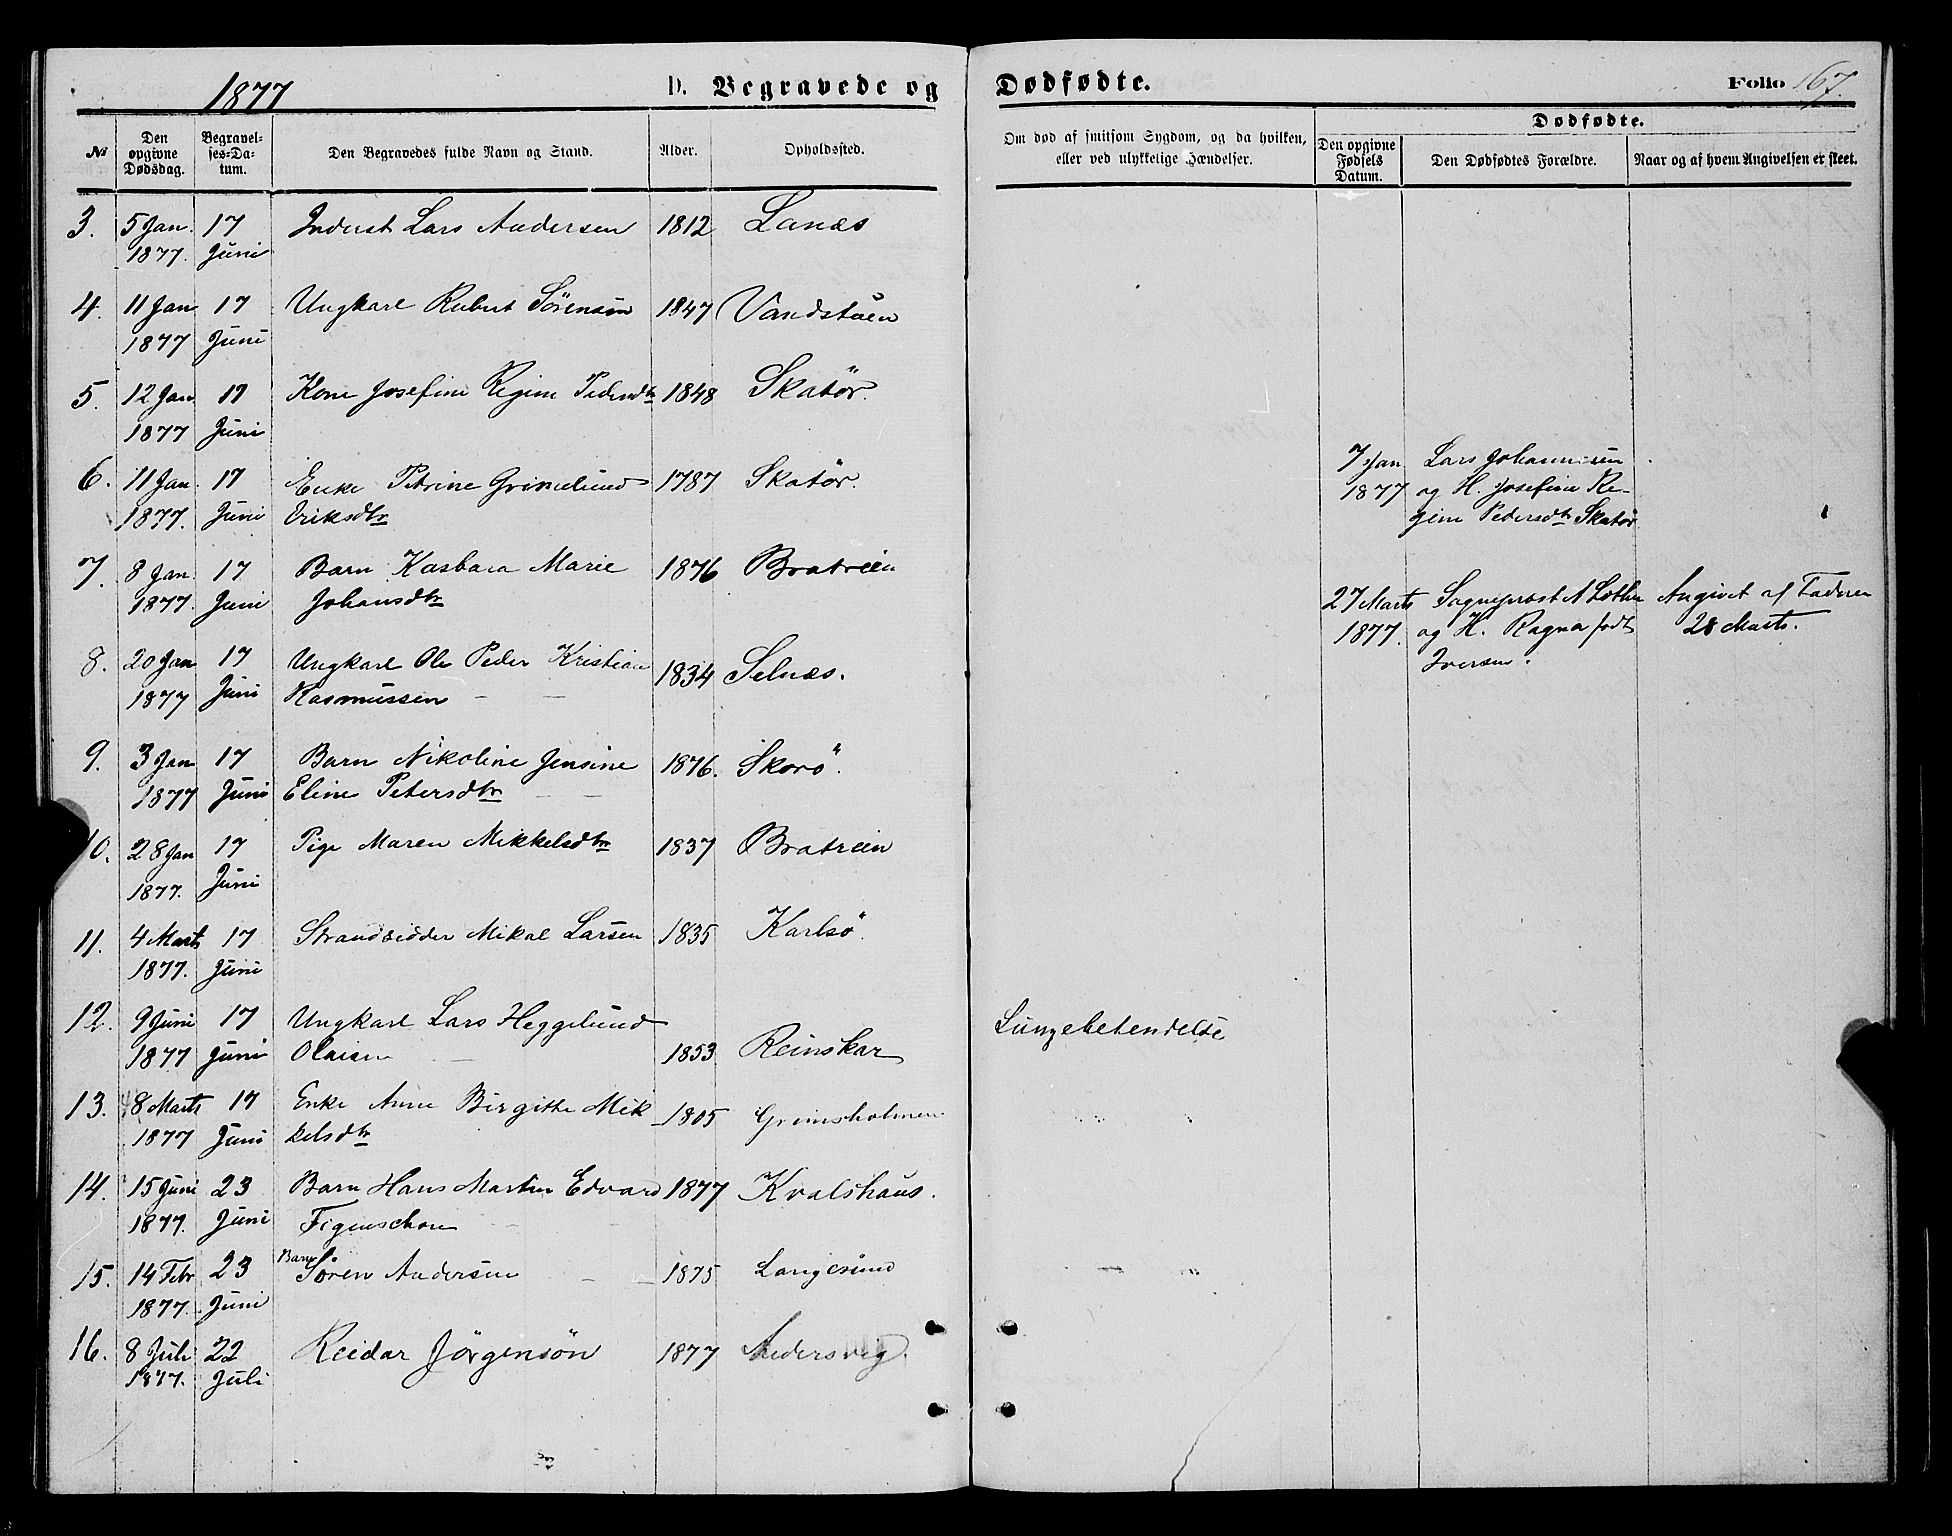 1877
D. Begravede og Dødfødte.
Folio 167.
№
Den opgivne Dødsdag.
Begravel-ses-Da-tum.
Den Begravedes fulde Navn og Stand.
Alder.
Opholdssted.
Om død af smitsom Sygdom, og da hvilken,
eller ved ulykkelige Hændelser.
Dødfødte.
Den opgivne Fødsels Datum.
Den Dødfødtes Forældre.
Naar og af hvem Angivelsen er skeet.
3. 5 Jan. 17 Inderst Lars Andersen 1812 Lanes
1877. Juni
4. 11 Jan 17 Ungkarl Rubert Sörensen 1847 Vandstuen
1877 Juni
5. 12 Jan 17 Kone Josefine Regine Pedersdtr 1848 Skatör.
1877 Juni
6. 11 Jan. 17 Enke Petrine Grönelund 1787 Skatör. 7 Jan Lars Johannesen
1877. Juni Eriksdtr 1877 og H. Josefine Re-
gine Pedersdtr Skatör
7. 8 Jan. 17 Barn Kasbara Marie 1876 Bratrein
1877. Juni Johansdtr 27 Marts Sogneprest A Lothe Angivet af Faderen
1877. og H. Ragna født 28 Marts.
Iversen.
8. 20 Jan 17 Ungkarl Ole Peder Kristian 1834 Selnes.
1877 Juni Rasmussen
9. 3 Jan 17 Barn Nikoline Jensine 1876. Skorö.
1877 Juni Eline Petersdtr
10. 28 Jan 17 Pige Maren Mikkelsdtr 1837 Bratrein
1877. Juni
11. 4 Marts 17 Strandsidder Mikal Larsen 1835 Karlsö.
1877. Juni
12. 9 Juni 17 Ungkarl Lars Heggelund Lungebetendelse
1877 Juni Olaisen 1853 Reinskar
13. 8 Marts 17 Enke Anne Birgitte Mik 1805 Grimsholmen.
1877 Juni kelsdtr
14. 15 Juni 23 Barn Hans Martin Edvard 1877 Kvalshaus.
1877. Juni Figenschou
15. 14 Febr 23 Barn Sören Andersen 1875 Langesund
1877. Juni
16. 8 Juli 22 Reidar Jörgensön 1877
1877. Juli